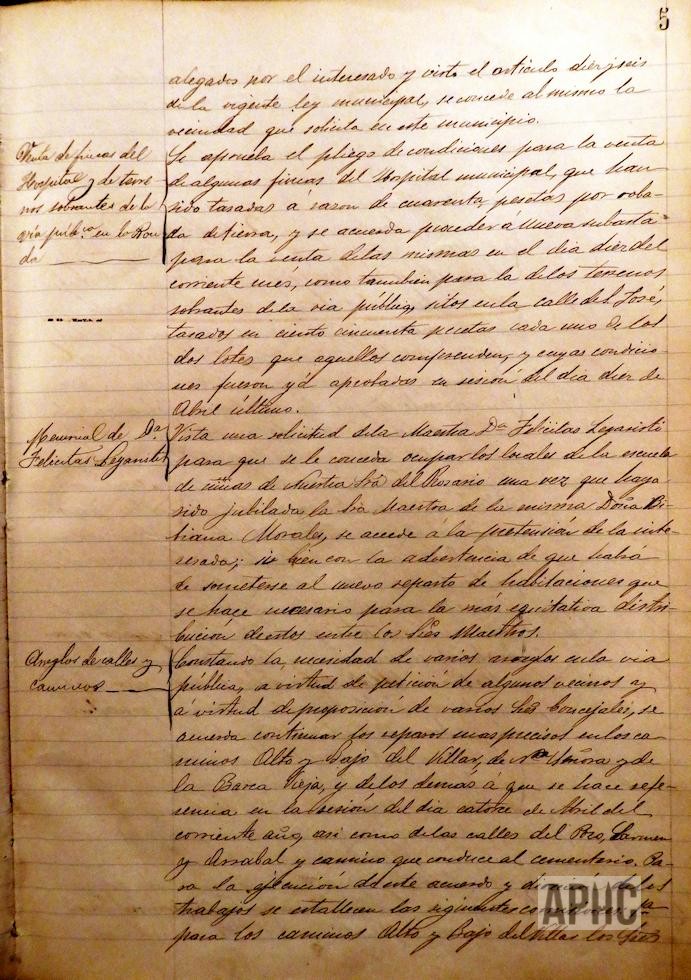 5
alegados por el interesado y visto el artículo diez y seis
de la vigente ley municipal, se concede al mismo la
vecindad que solicita en este municipio.
Venta de fincas del
Hospital y de terre
nos sobrantes de la
via pub.ca en la Ron
da
Se aprueba el pliego de condiciones para la venta
de algunas fincas del Hospital municipal, que han
sido tasadas a razon de cuarenta pesetas por roba-
da de tierra, y se acuerda proceder á nueva subasta
para la venta de las mismas en el dia diez del
corriente mes, como tambien para la de los terrenos
sobrantes de la via pública, sitos en la calle de S. José,
tasados en ciento cincuenta pesetas cada uno de los
dos lotes que aquellos comprenden, y cuyas condicio-
nes fueron yá aprobadas en sesión del dia diez de
Abril último.
Memorial de Da.
Felicitas Leganisti
Vista una solicitud de la Maestra Da Felicitas Leganisti
para que se le conceda ocupar los locales de la escuela
de niñas de Nuestra Sra del Rosario una vez que haya
sido jubilada la Sra Maestra de la misma Doña Bi-
biana Morales, se accede á la pretensión de la inte-
resada; si bien con la advertencia de que habrá
de someterse al nuevo reparto de habitaciones que
se hace necesario para la más equitativa distri-
bución de estos entre los Sres Maestros.
Arreglos de calles y
caminos
Constando la necesidad de varios arreglos en la via
pública, a virtud de petición de algunos vecinos y
á virtud de proposición de varios Sres Concejales, se
acuerda continuar los reparos mas precisos en los ca-
minos Alto y Bajo del Villar, de Ntra Señora y de
la Barca Vieja, y de los demás á que se hace refe-
rencia en la sesión del dia catorce de Abril del
corriente año, asi como de las calles del Pozo, Carmen
y Arrabal y camino que conduce al cementerio. Pa-
ra la ejecución de este acuerdo y dirección de los
trabajos se establecen las siguientes
para los caminos Alto y Bajo del Villar los Sres
APHC